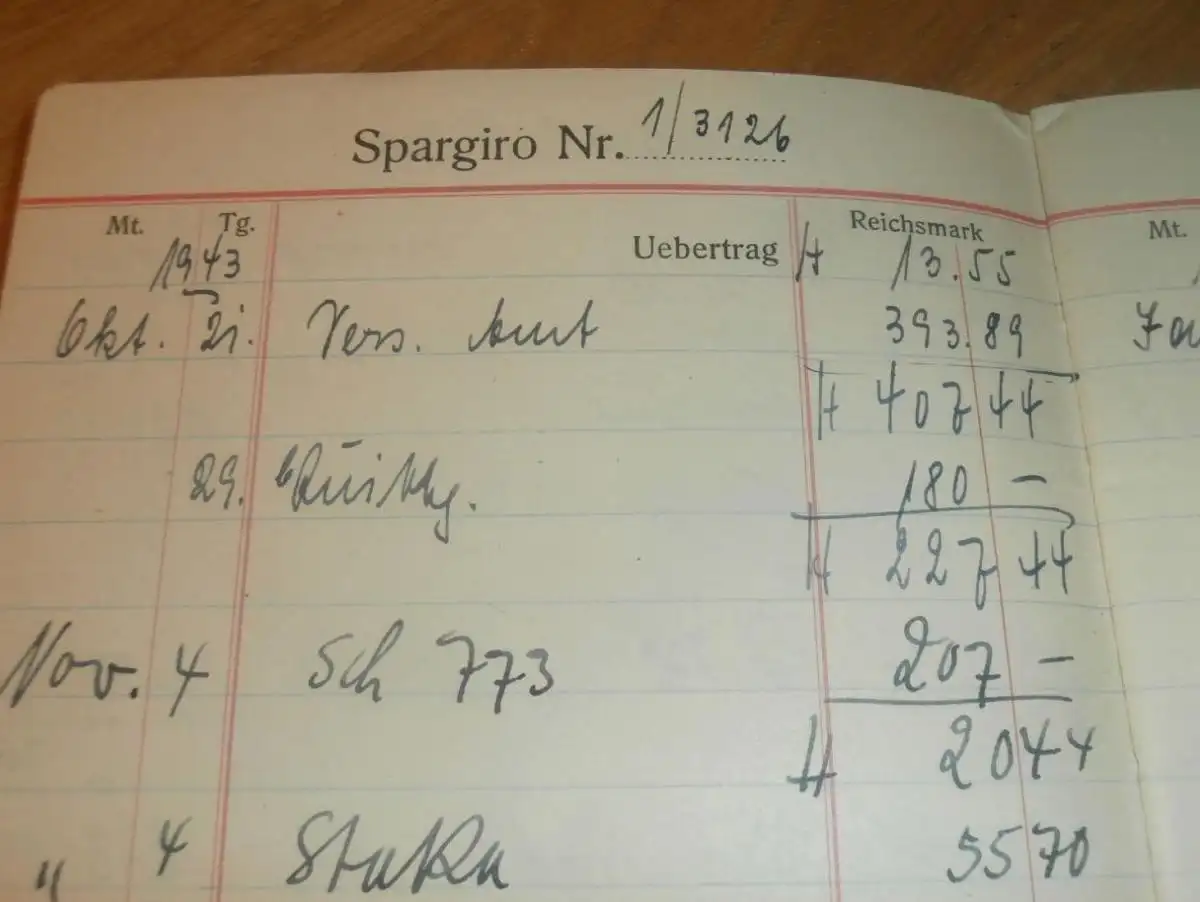 Spargiro Nr. 1/3126
Mt. Tg. Reichsmark Mt.
1943 Uebertrag H 13.55
Okt. 21. Vers. Amt 393.89
H 407 44
29. Quittg. 180 —
H 227 44
Nov. 4 Sch 773 207 —
H 20 44
" 4 StaKa 55 70